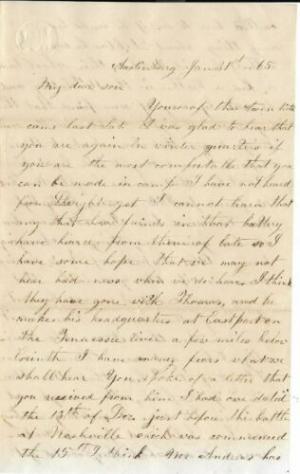 Austinburg Jan 31st /65
My dear son
Yours of the
came last Sat. I was glad to hear that
you are again in winter quarters if
you are the most comfortable that you
can be made in camp I have not heard
from yet I cannot learn that
any that have friends in that battery
have heard from them of late so I
have some hope that we may not
hear bad news when we do hear I think
they have gone with Thomas, and he
makes his headquarters at Eastport on
the Tennessee river a few miles below
Corinth I have many fears what we
shall hear You spoke of a letter that
you received from him I had one dated
the 13th of Dec. just before the battle
at Nashville wich was commenced
the 15th I think Mrs Andrews has